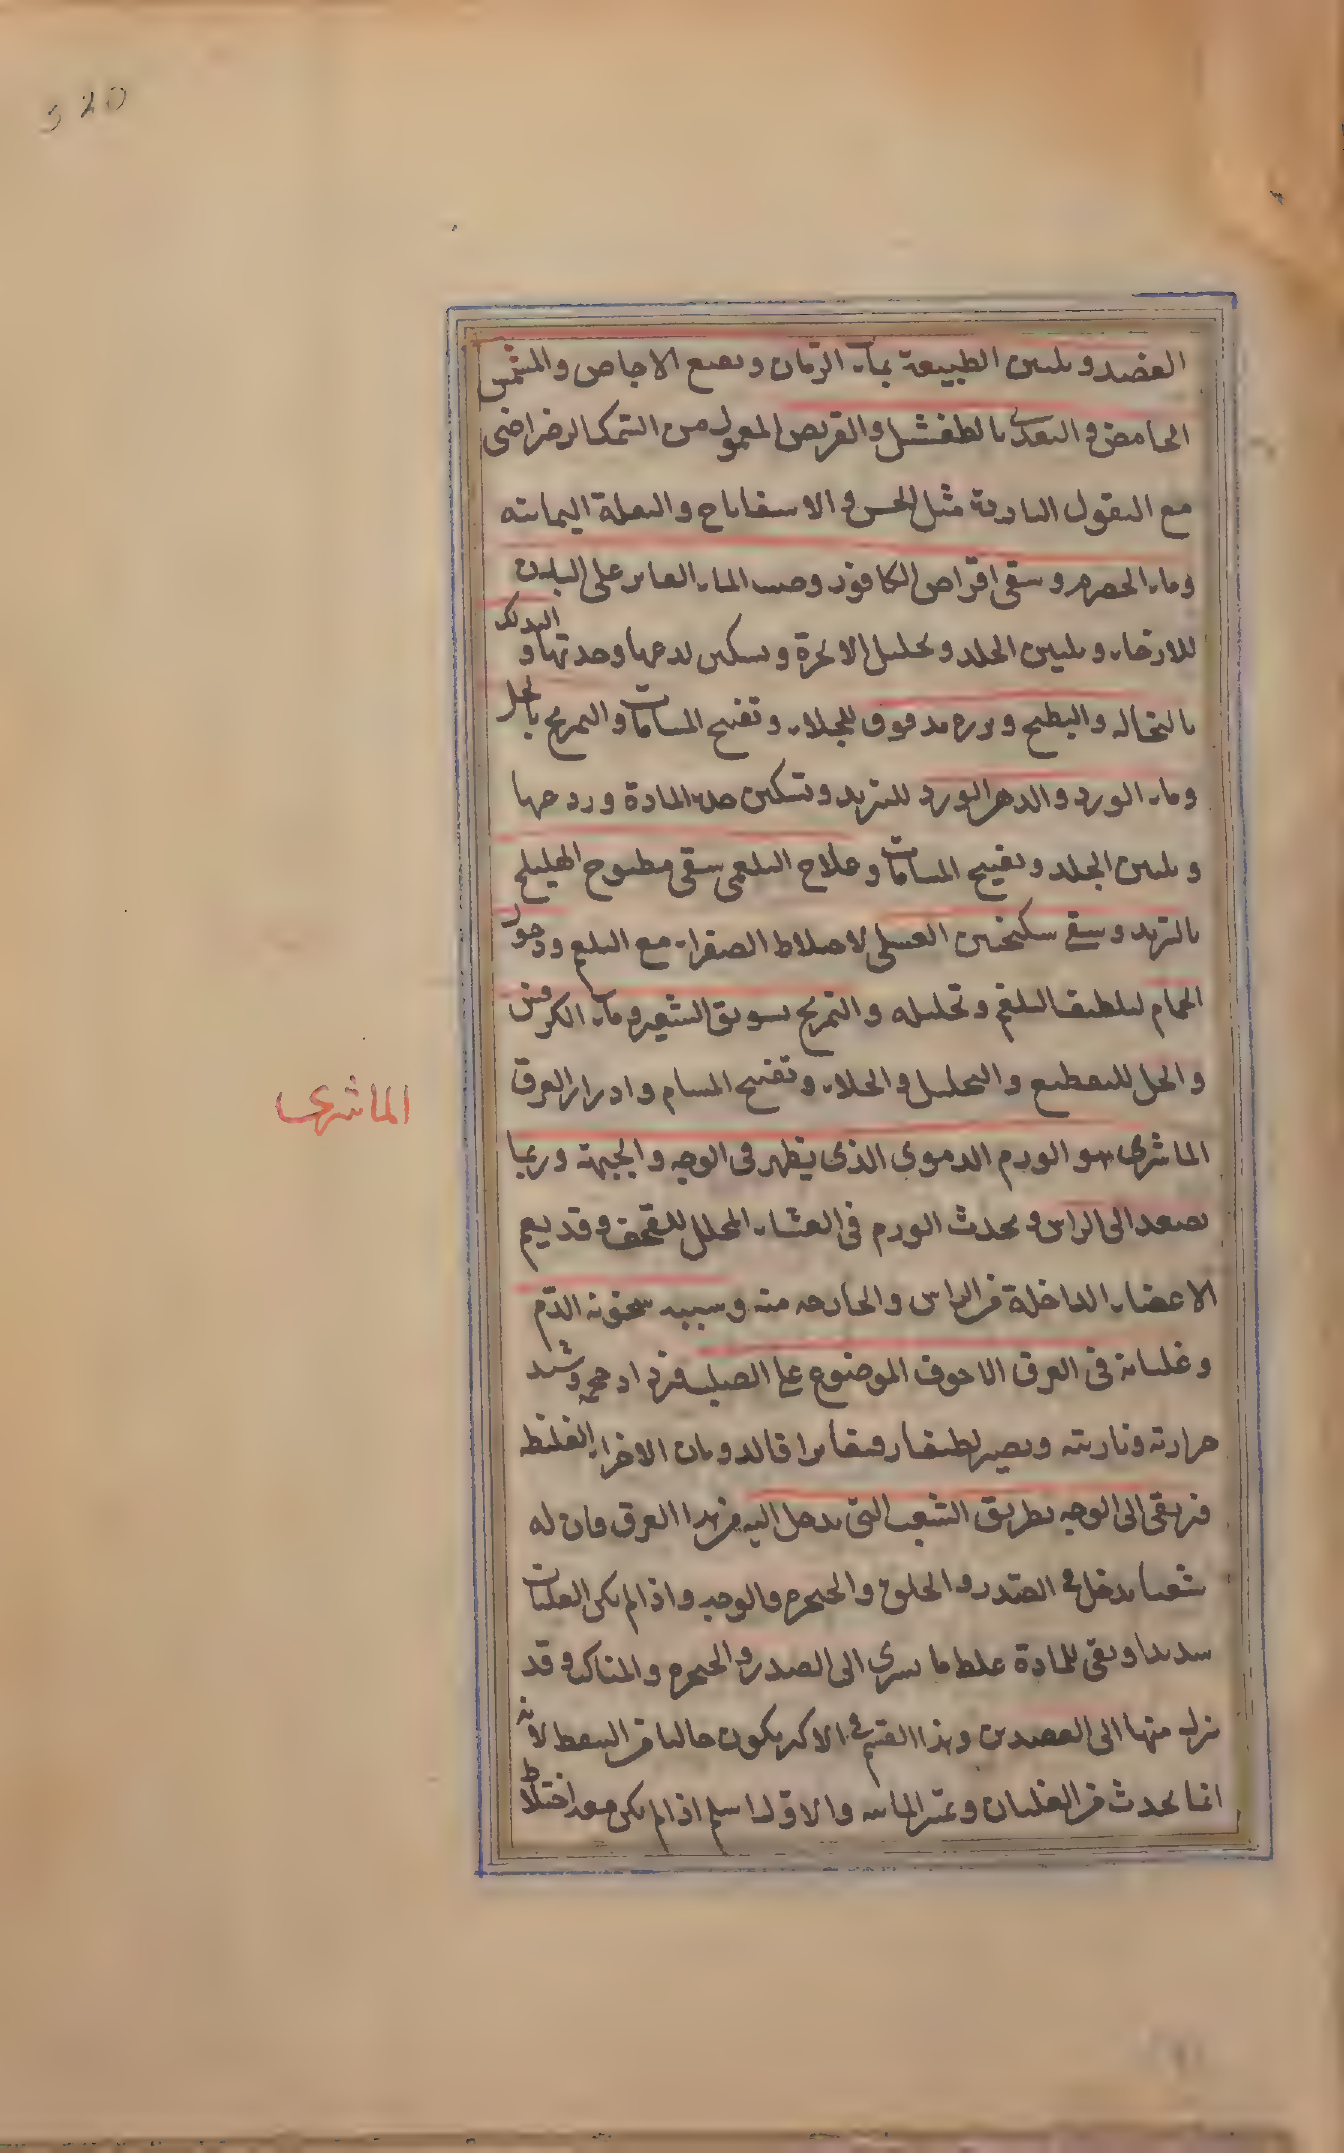 320
الفصد وتليين الطبيعة بماء الرمان ونقيع الاجاص والمشمش
الحامض والتغذي بالطفشل والقريص المعمول من السمك الرضراضى
مع البقول الباردة مثل الخس والاسفاناخ والبقلة اليمانية
وماء الحصرم وسقى اقراص الكافور وصب الماء الفاتر على البدن
للارخاء وتليين الجلد وتحليل الابخرة وتسكين لدعها وحدتها والتدلك
بالنخالة والبطيخ وبزره مدقوق للجلاء وتفتيح المسامات والتمريخ بالخل
وماء الورد والدهن الورد للتبريد وتسكين حدة المادة وردعها
وتليين الجلد وتفتيح المسامات وعلاج البلغمى سقى مطبوخ الهليلج
بالتربد وسقى سكنجبين العسلى لاختلاط الصفراء مع البلغم ودخول
الحمام لتلطيف البلغم وتحليله والتمريخ بسويق الشعير وماء الكرفس
والخل للتقطيع والتحليل والجلاء وتفتيح المسام وادرار العرق
الماشرى
الماشرى هو الورم الدموى الذى يظهر فى الوجه والجبهة وربما
يصعد الى الراس ويحدث الورم فى الغشاء المجلل للقحف وقد يعم
الاعضاء الداخلة فى الراس والخارجه منه وسببه سخونة الدم
وغليانه فى العرق الاجوف الموضوع على الصلب فيزداد حجمه وتشتد
حرارته وناريته ويصير لطيفا رقيقا برا قالدوبان الاجزاء الغليظ
فيرتقى الى الوجه بطريق الشعب التى يدخل اليه من هذا العرق فان له
شعبا يدخل فى الصدر والحلق والحنجره والوجه واذا لم يكن الغليان
شديدا وبقى للمادة غلظ ما يسرى الى الصدر والحنجره والمناكب وقد
ينزل منها الى العضدين وهذا القسم فى الاكثر يكون خاليا من السقط لانه
انما يحدث من الغليان وعند الماسه والاول اسلم اذا لم يكن معه اختلاط